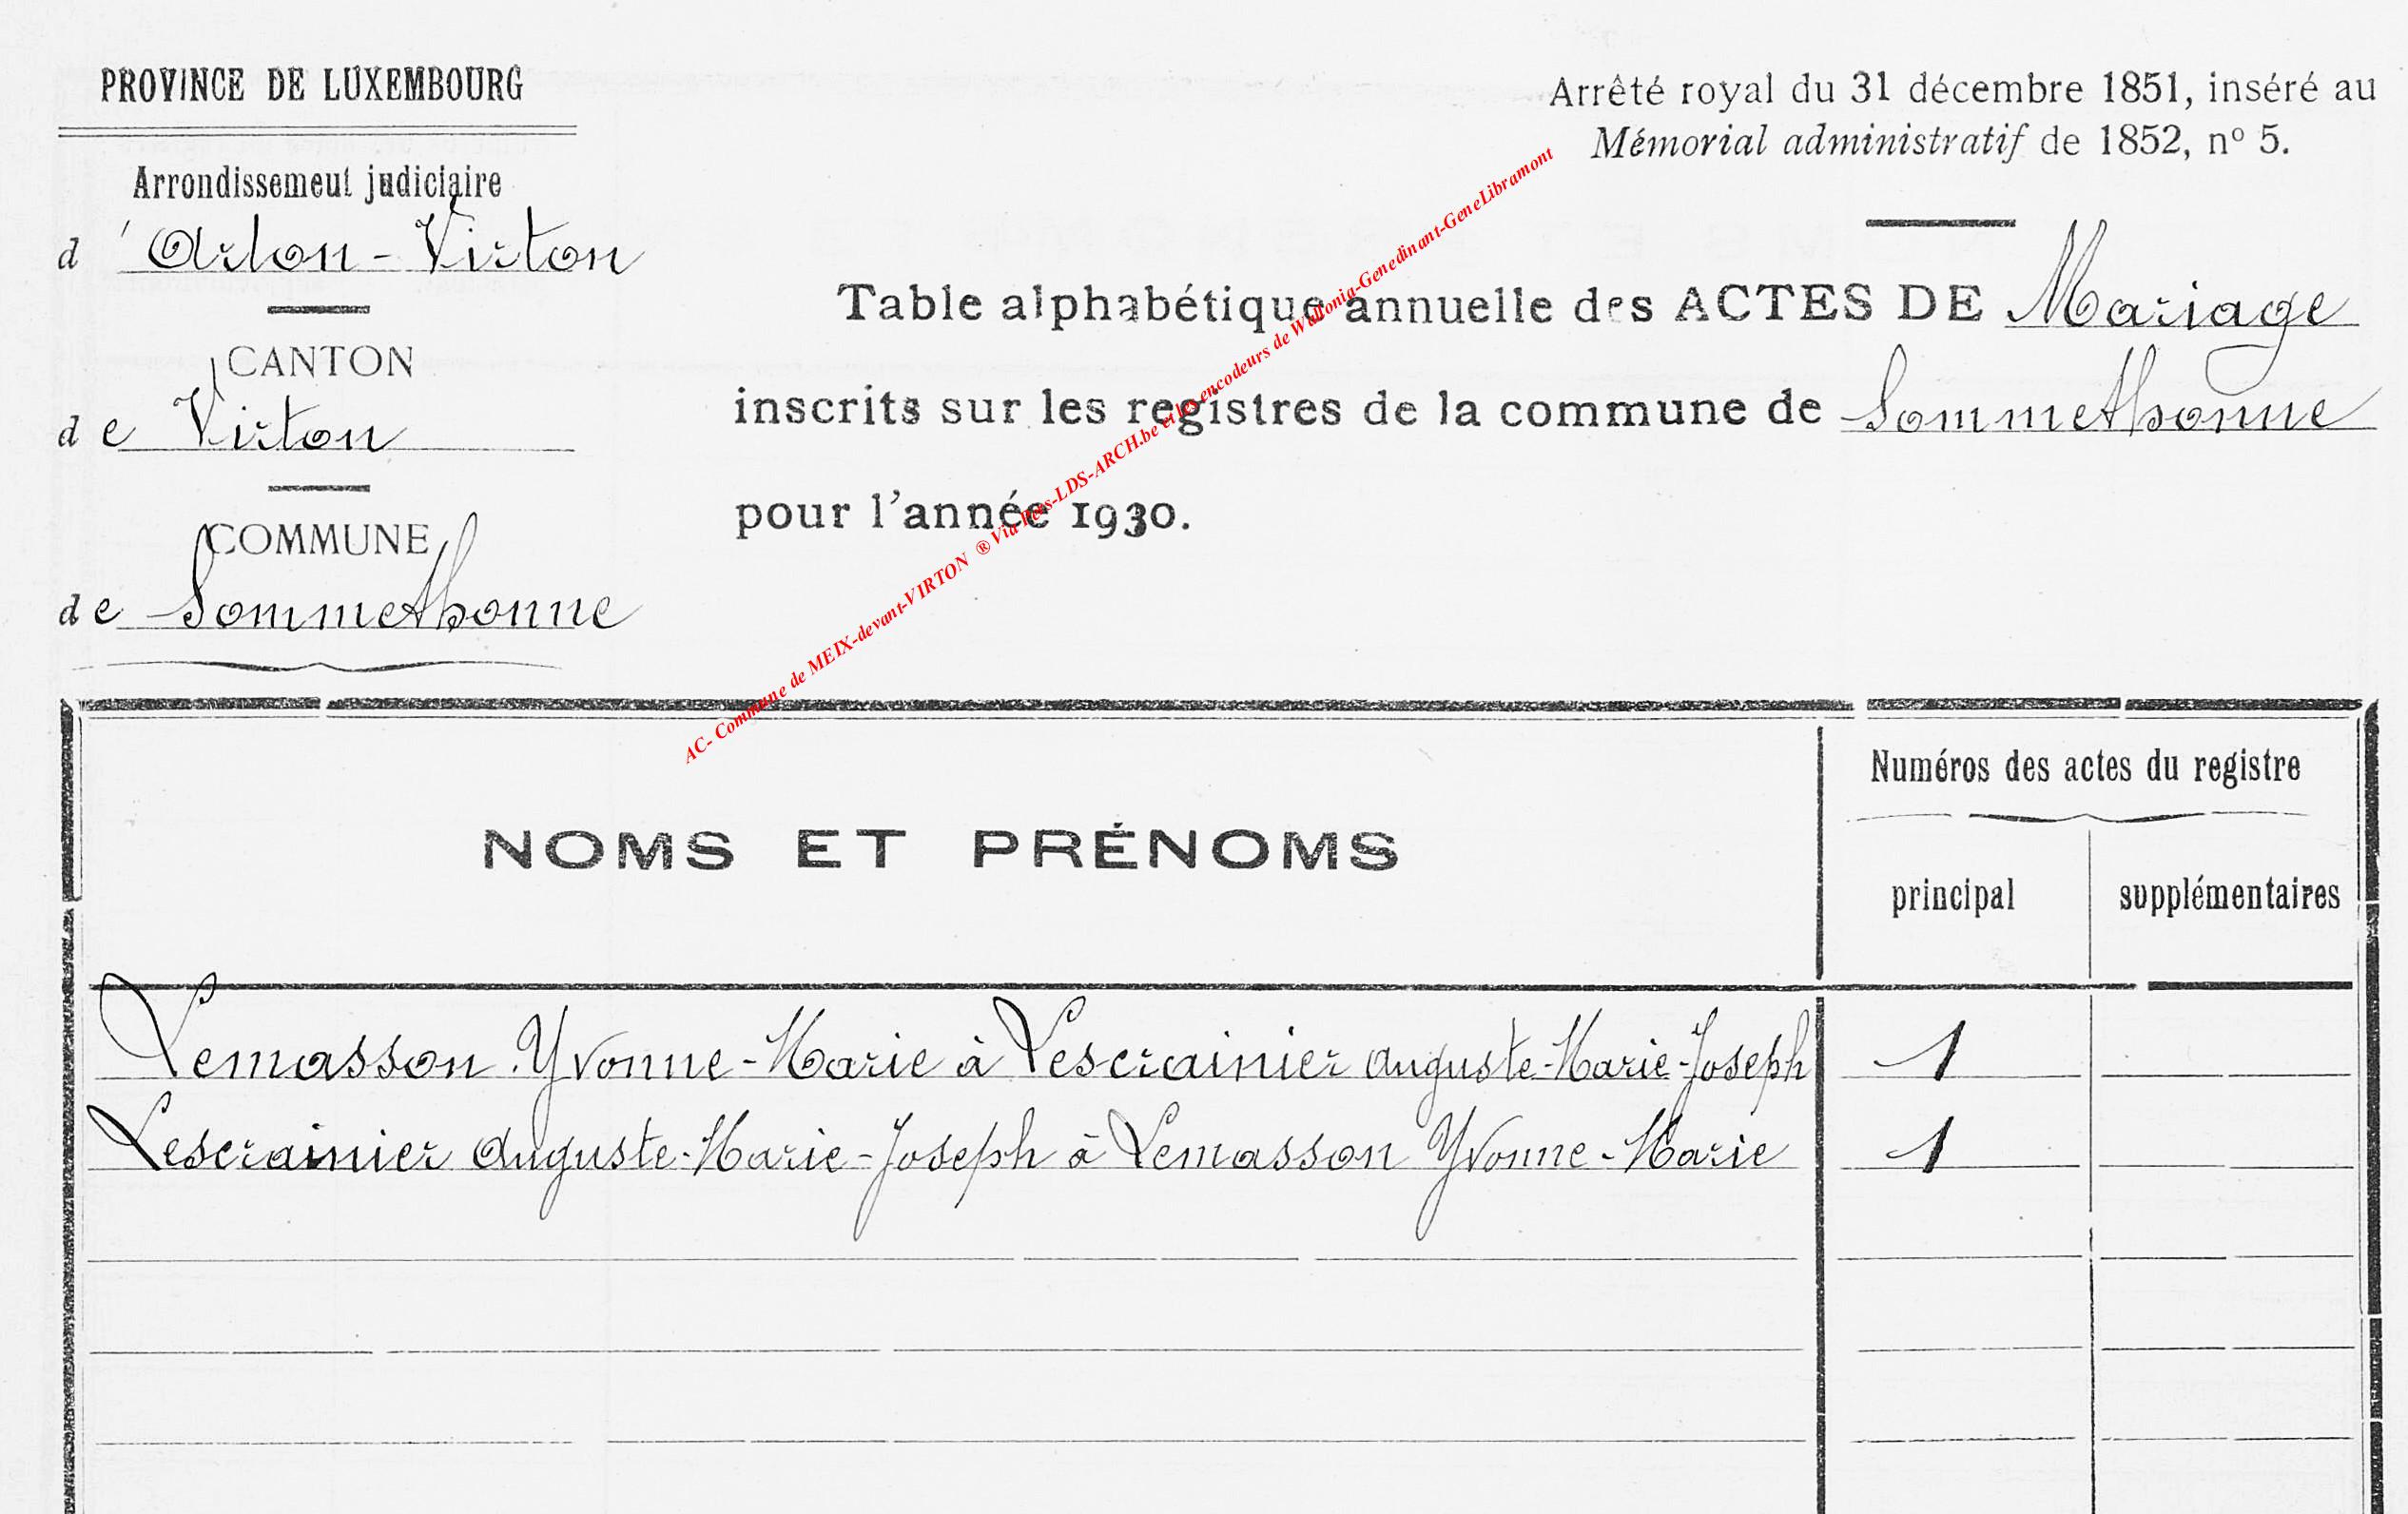 PROVINCE DE LUXEMBOURG
Arrondissement judiciaire
d'Arlon-Virton
CANTON
de Virton
COMMUNE
de Sommethonne
Arrêté royal du 31 décembre 1851, inséré au
Mémorial administratif de 1852, nº 5.
Table alphabétique annuelle des ACTES DE Mariage
inscrits sur les registres de la commune de Sommethonne
pour l'année 1930.
AC- Commune de MEIX-devant-VIRTON ® Via Pers-LDS-ARCH.be et les encodeurs de Wallonia-Genedinant-GeneLibramont
NOMS ET PRÉNOMS
Numéros des actes du registre
principal
supplémentaires
Lemasson Yvonne-Marie à Lescrainier Auguste-Marie-Joseph 1
Lescrainier Auguste-Marie-Joseph à Lemasson Yvonne-Marie 1